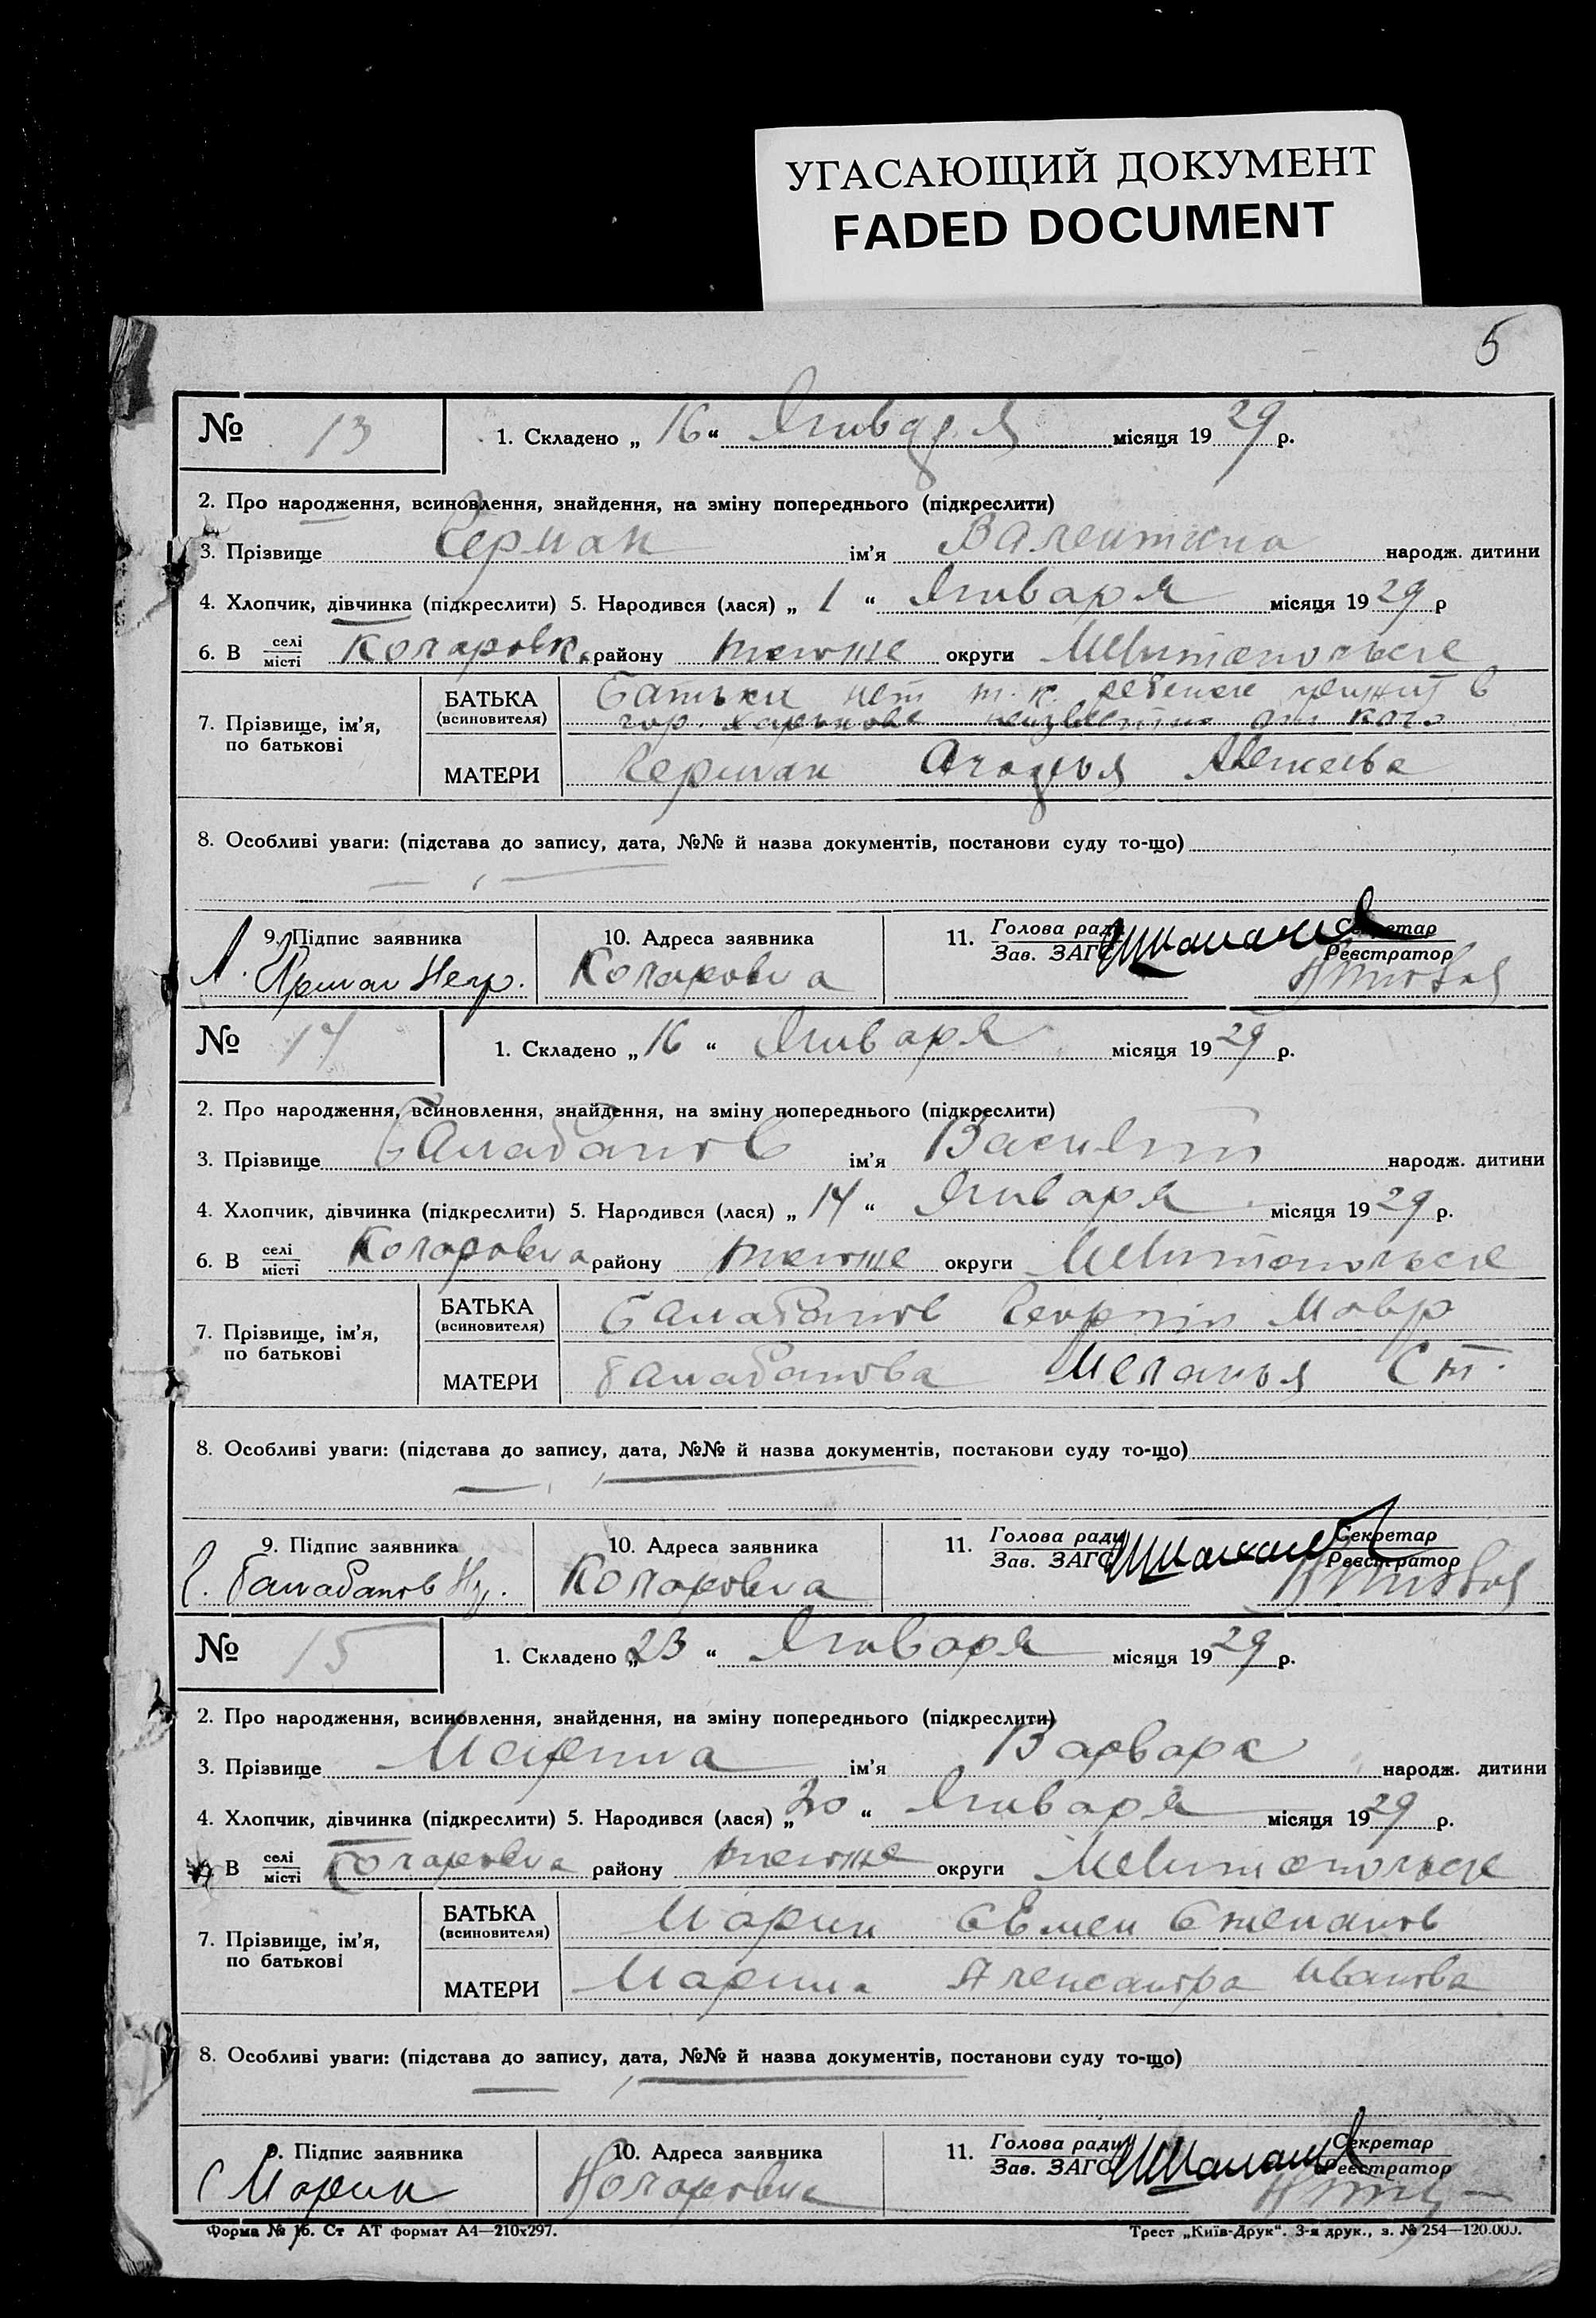 УГАСАЮЩИЙ ДОКУМЕНТ
FADED DOCUMENT
5
№ 13 1. Складено „ 16 “ Января місяця 19 29 р.
2. Про народження, всиновлення, знайдення, на зміну попереднього (підкреслити)
3. Прізвище Герман ім'я Валентина народж. дитини
4. Хлопчик, дівчинка (підкреслити) 5. Народився (лася) „ 1 “ Января місяця 19 29 р
6. В селі/місті Коларовка району тоже округи Мелитопольске
7. Прізвище, ім'я, по батькові
БАТЬКА (всиновителя) Батьки нет т. к. ребенок
гор. Харькове неизвестно от кого
МАТЕРИ Герман
8. Особливі уваги: (підстава до запису, дата, №№ й назва документів, постанови суду то-що)
9. Підпис заявника 10. Адреса заявника 11. Голова ради Секретар
Зав. ЗАГС Реєстратор
Коларовка
№ 14 1. Складено „ 16 “ Января місяця 19 29 р.
2. Про народження, всиновлення, знайдення, на зміну попереднього (підкреслити)
3. Прізвище Балабанов ім'я Василий народж. дитини
4. Хлопчик, дівчинка (підкреслити) 5. Народився (лася) „ 14 “ Января місяця 19 29 р.
6. В селі/місті Коларовка району тоже округи Мелитопольске
7. Прізвище, ім'я, по батькові
БАТЬКА (всиновителя) Балабанов Георгий Мавр
МАТЕРИ Балабанова Меланья Ст.
8. Особливі уваги: (підстава до запису, дата, №№ й назва документів, постанови суду то-що)
9. Підпис заявника 10. Адреса заявника 11. Голова ради Секретар
Зав. ЗАГС Реєстратор
Г. Балабанов Коларовка
№ 15 1. Складено „ 23 “ Января місяця 19 29 р.
2. Про народження, всиновлення, знайдення, на зміну попереднього (підкреслити)
3. Прізвище Марина ім'я Варвара народж. дитини
4. Хлопчик, дівчинка (підкреслити) 5. Народився (лася) „ 20 “ Января місяця 19 29 р.
В селі/місті Коларовка району тоже округи Мелитопольске
7. Прізвище, ім'я, по батькові
БАТЬКА (всиновителя) Марин Семен Степанов
МАТЕРИ Марина Александра Иванова
8. Особливі уваги: (підстава до запису, дата, №№ й назва документів, постанови суду то-що)
9. Підпис заявника 10. Адреса заявника 11. Голова ради Секретар
Зав. ЗАГС Реєстратор
С Марин Коларовка
Форма № 1б. Ст АТ формат А4—210х297. Трест „Київ-Друк“. 3-я друк., з. № 254—120.000.